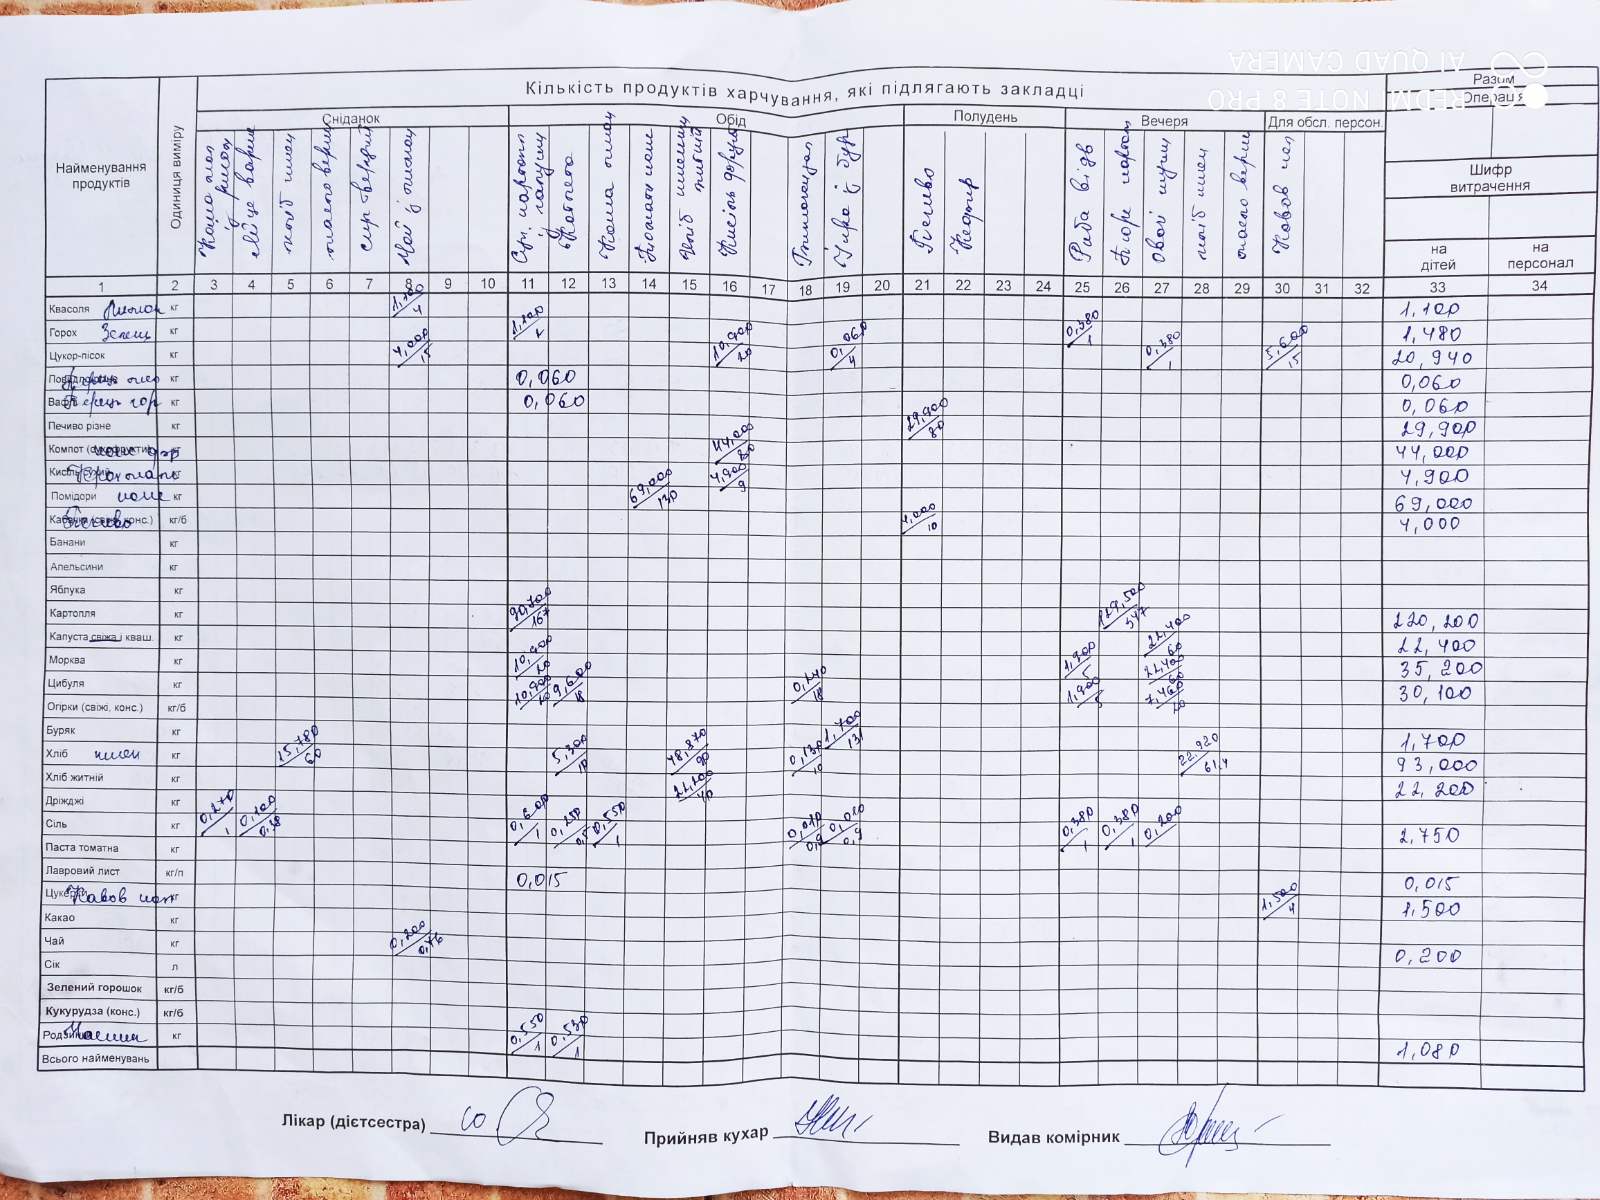 AI QUAD CAMERA
REDMI NOTE 8 PRO
Найменування продуктів
Одиниця виміру
Кількість продуктів харчування, які підлягають закладці
Разом
Операція
Сніданок
Обід
Полудень
Вечеря
Для обсл. персон.
Шифр витрачення
на дітей
на персонал
Яйце варене
хліб пшен
масло верш
сир твердий
Чай з лимоном
Котлета
Хліб пшениц житній
Печиво
Кефір
Риба відв
хліб пшен
масло верш
1 2 3 4 5 6 7 8 9 10 11 12 13 14 15 16 17 18 19 20 21 22 23 24 25 26 27 28 29 30 31 32 33 34
Квасоля Лимон кг 1,100/4 1,100
Горох Зелень кг 1,100/2 0,380/1 1,480
Цукор-пісок кг 4,000/15 10,900/20 0,060/4 0,380/1 5,600/15 20,940
кг 0,060 0,060
Перець гор кг 0,060 0,060
Печиво різне кг 29,900/80 29,900
Компот (сухофрукти) кг 44,000/80 44,000
Крохмаль кг 4,900/9 4,900
Помідори кг 69,000/130 69,000
кг/б 4,000/10 4,000
Банани кг
Апельсини кг
Яблука кг
Картопля кг 90,700/167 129,500/347 220,200
Капуста свіжа і кваш. кг 22,400/60 22,400
Морква кг 10,900/20 1,900/5 22,400/60 35,200
Цибуля кг 10,900/20 9,600/18 0,240/18 1,900/5 7,460/20 30,100
Огірки (свіжі, конс.) кг/б
Буряк кг 1,700/131 1,700
Хліб пшен кг 15,780/60 5,300/10 48,870/90 0,130/10 22,920/61,4 93,000
Хліб житній кг 22,200/40 22,200
Дріжджі кг
Сіль кг 0,270/1 0,100/0,38 0,600/1 0,250/0,5 0,550/1 0,010/0,9 0,010/0,9 0,380/1 0,380/1 0,200 2,750
Паста томатна кг
Лавровий лист кг/п 0,015 0,015
Кавов нап кг 1,500/4 1,500
Какао кг
Чай кг 0,200/0,76 0,200
Сік л
Зелений горошок кг/б
Кукурудза (конс.) кг/б
кг 0,550/1 0,530/1 1,080
Всього найменувань
Лікар (дієтсестра)
Прийняв кухар
Видав комірник